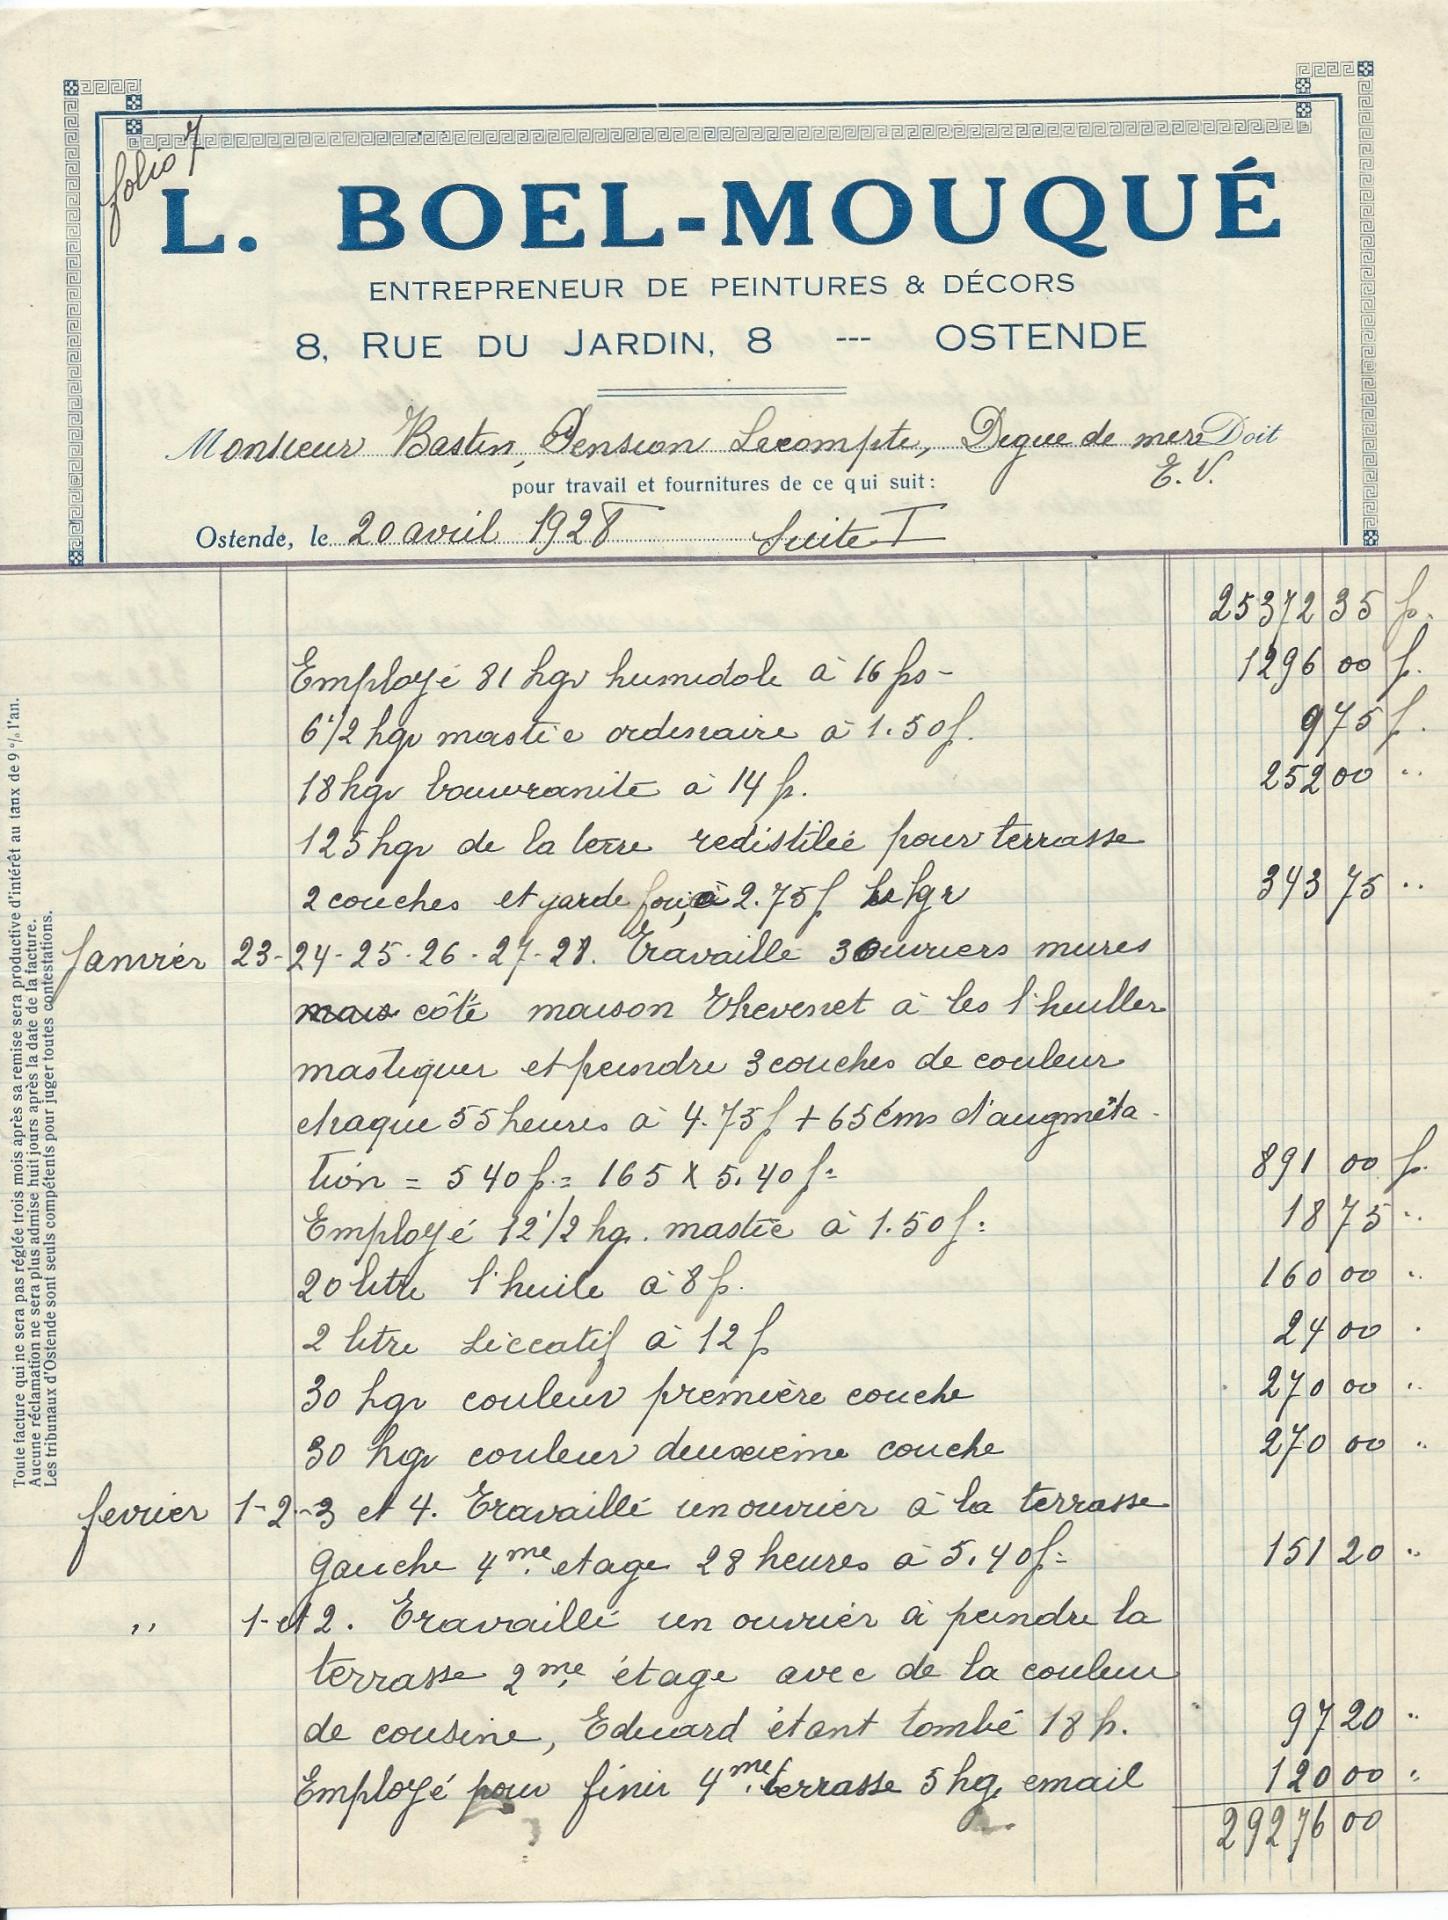 folio 7
L. BOEL-MOUQUÉ
ENTREPRENEUR DE PEINTURES & DÉCORS
8, RUE DU JARDIN, 8 --- OSTENDE
Monsieur Bastin, Pension Lecompte, Degue de mere Doit
E. V.
pour travail et fournitures de ce qui suit :
Ostende, le 20 avril 1928 Suite I
25372 35 f.
Employé 81 kgr humidole à 16 frs- 1296 00 f.
6 1/2 kgr mastic ordinaire à 1.50 f. 9 75 f.
18 kgr bouvranite à 14 f. 252 00 "
125 kgr de la terre redistilée pour terrasse
2 couches et garde fou, à 2.75 f le kgr 343 75 "
Janvier 23-24-25-26-27-28. Travaillé 3 ouvriers mures
mais côté maison Thevenet à les l'huiller
mastiquer et peindre 3 couches de couleur
chaque 55 heures à 4.75 f + 65 cms d'augmēta-
tion = 5 40 f. = 165 x 5.40 f = 891 00 f.
Employé 12 1/2 kg. mastic à 1.50 f = 18 75 "
20 litre l'huile à 8 f. 160 00 "
2 litre siccatif à 12 f 24 00 "
30 kgr couleur première couche 270 00 "
30 kgr couleur deuxieime couche 270 00 "
fevrier 1-2-3 et 4. Travaillé un ouvrier à la terrasse
gauche 4me etage 28 heures à 5.40 f = 151 20 "
" 1- et 2. Travaillé un ouvrier à peindre la
terrasse 2me étage avec de la couleur
de cousine, Eduard étant tombé 18 h. 97 20 "
Employé pour finir 4me terrasse 5 kg. email 120 00 "
29276 00
Toute facture qui ne sera pas réglée trois mois après sa remise sera productive d'intérêt au taux de 9 % l'an.
Aucune réclamation ne sera plus admise huit jours après la date de la facture.
Les tribunaux d'Ostende sont seuls compétents pour juger toutes contestations.